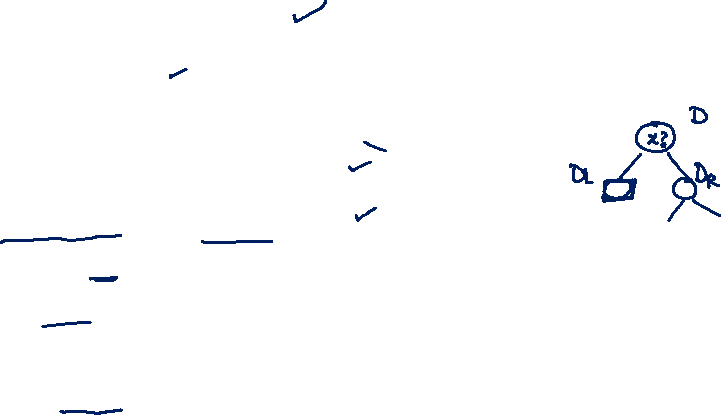 D
x?
DL DR